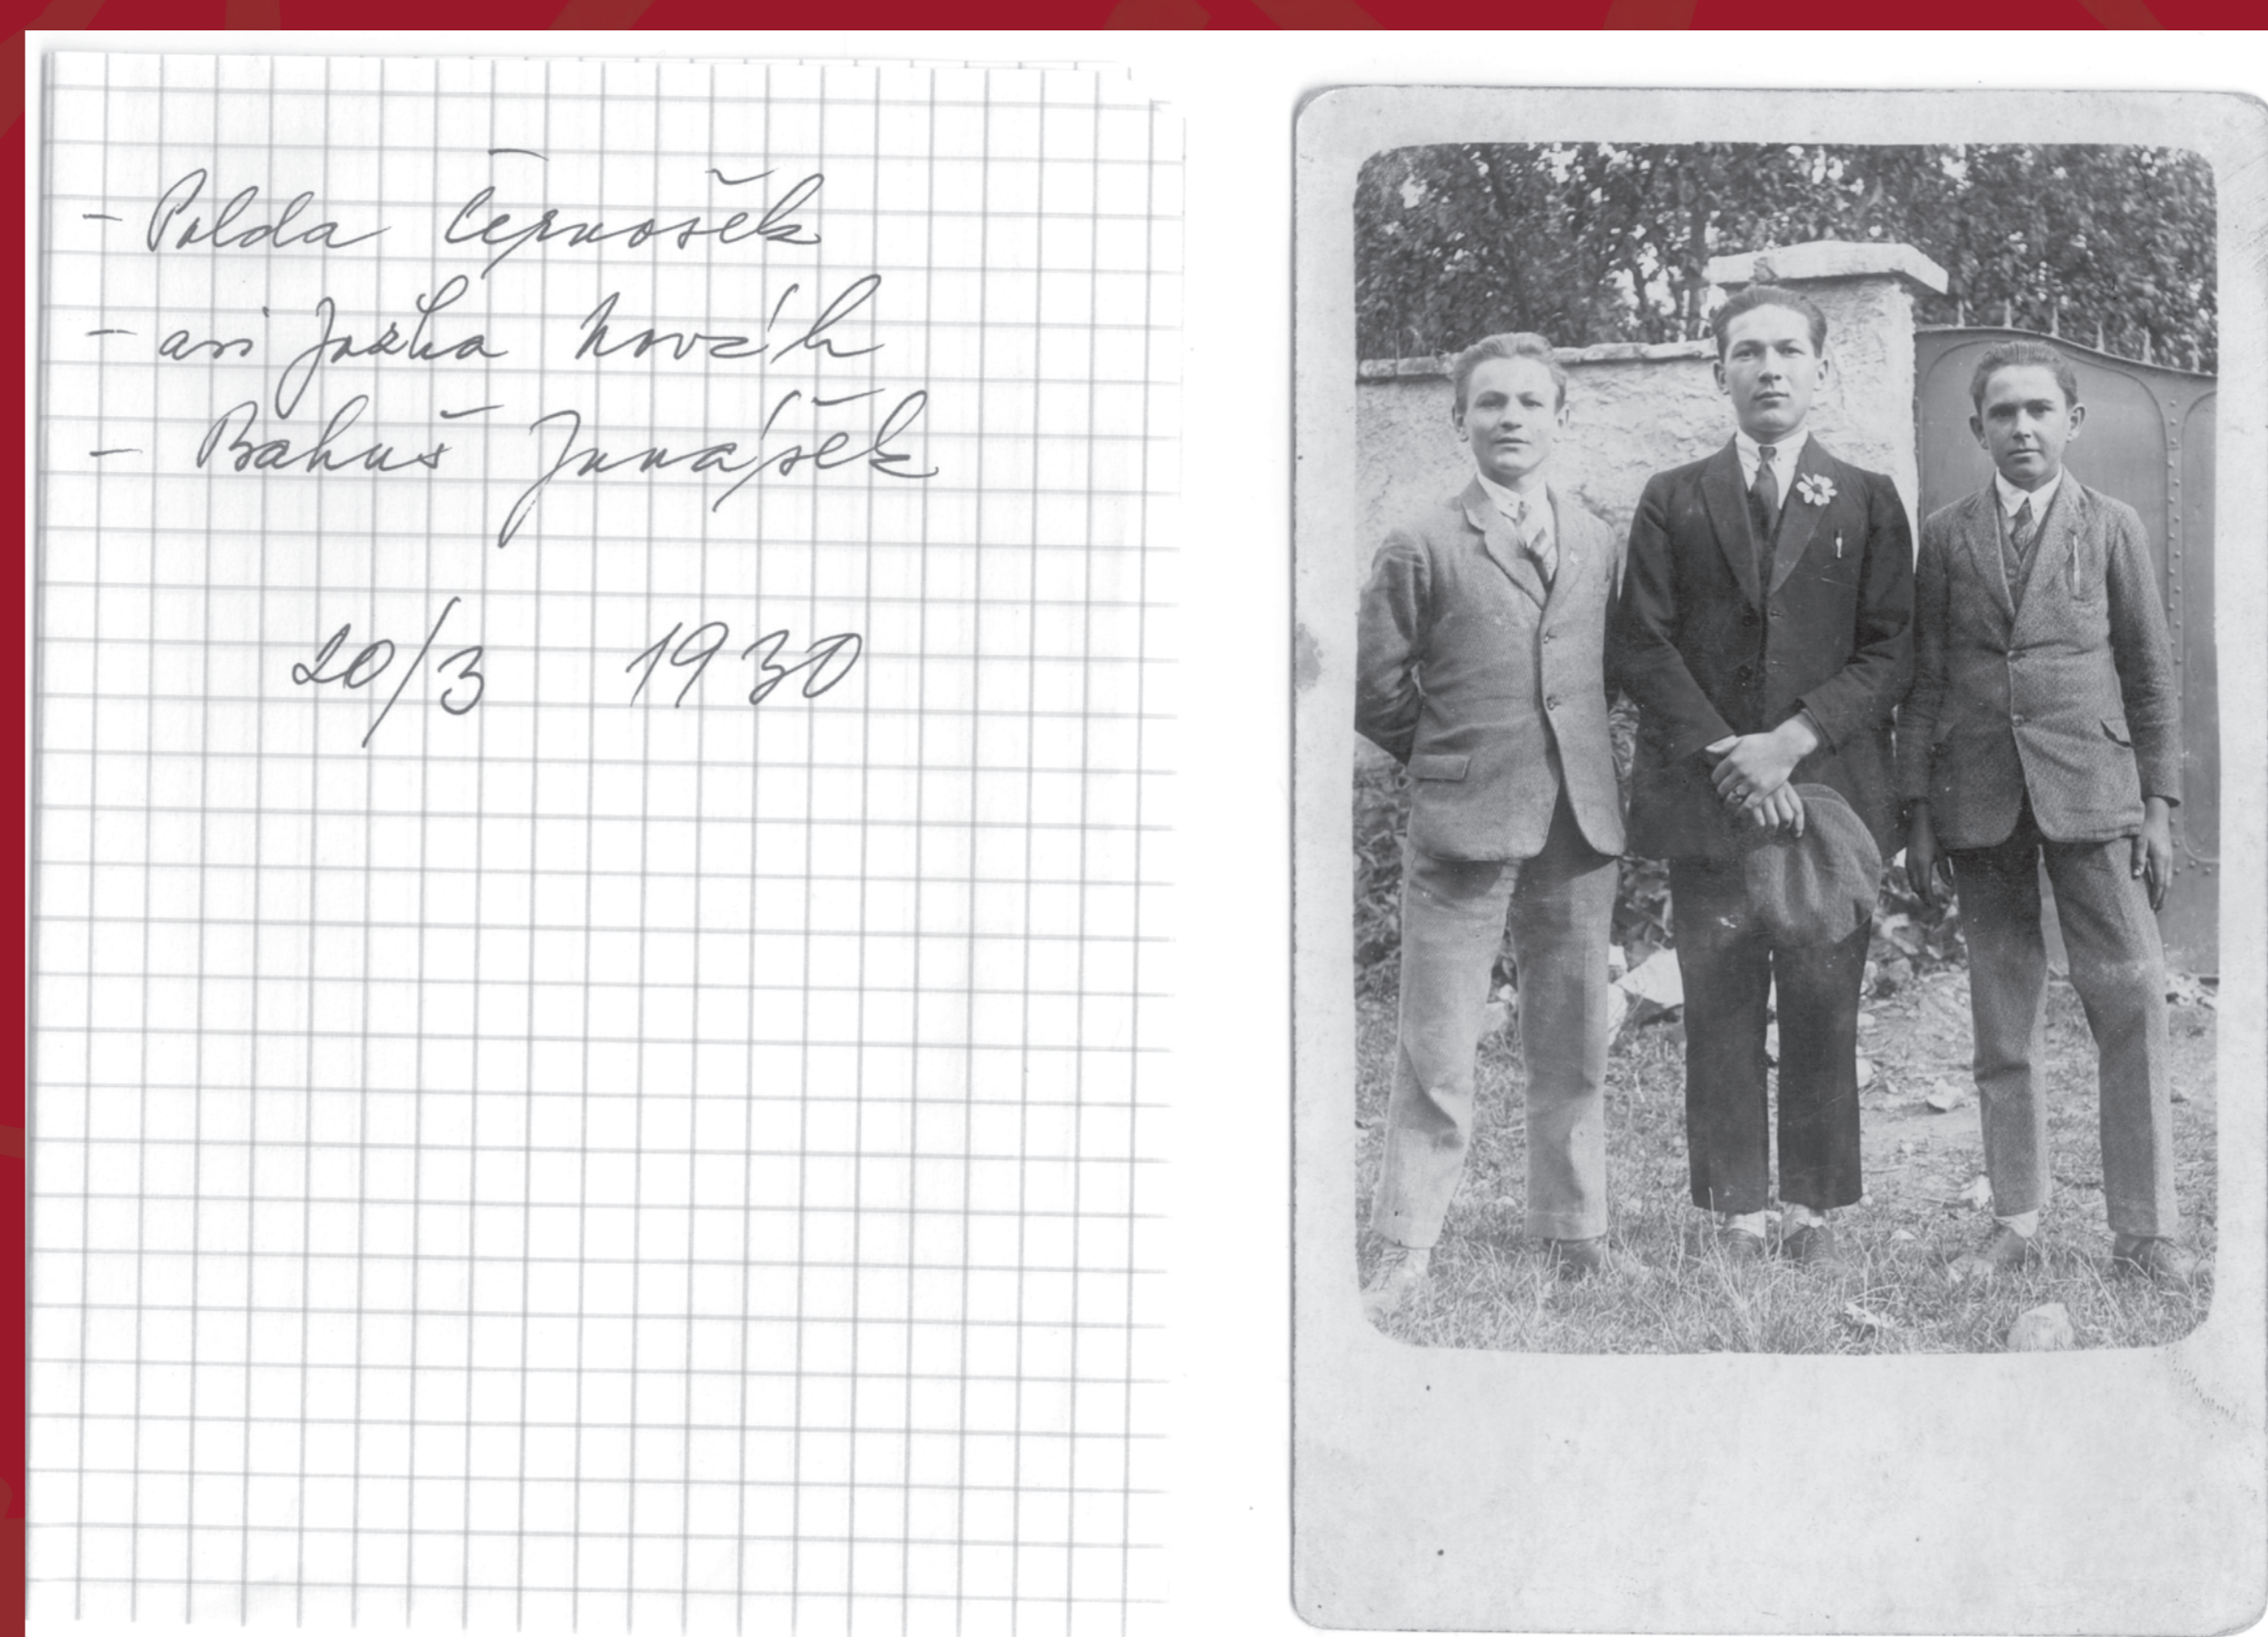 - Polda Černošek
- asi Jožka Novák
- Bohuš Junášek
20/3 1930